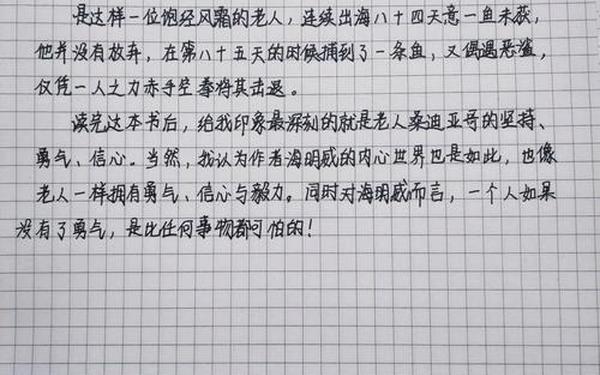 是这样一位饱经风霜的老人，连续出海八十四天竟一鱼未获，
他并没有放弃，在第八十五天的时候捕到了一条鱼，又偶遇恶鲨，
仅凭一人之力赤手空拳将其击退。
读完这本书后，给我印象最深刻的就是老人桑迪亚哥的坚持、
勇气、信心。当然，我认为作者海明威的内心世界也是如此，也像
老人一样拥有勇气、信心与毅力。同时对海明威而言，一个人如果
没有了勇气，是比任何事物都可怕的！